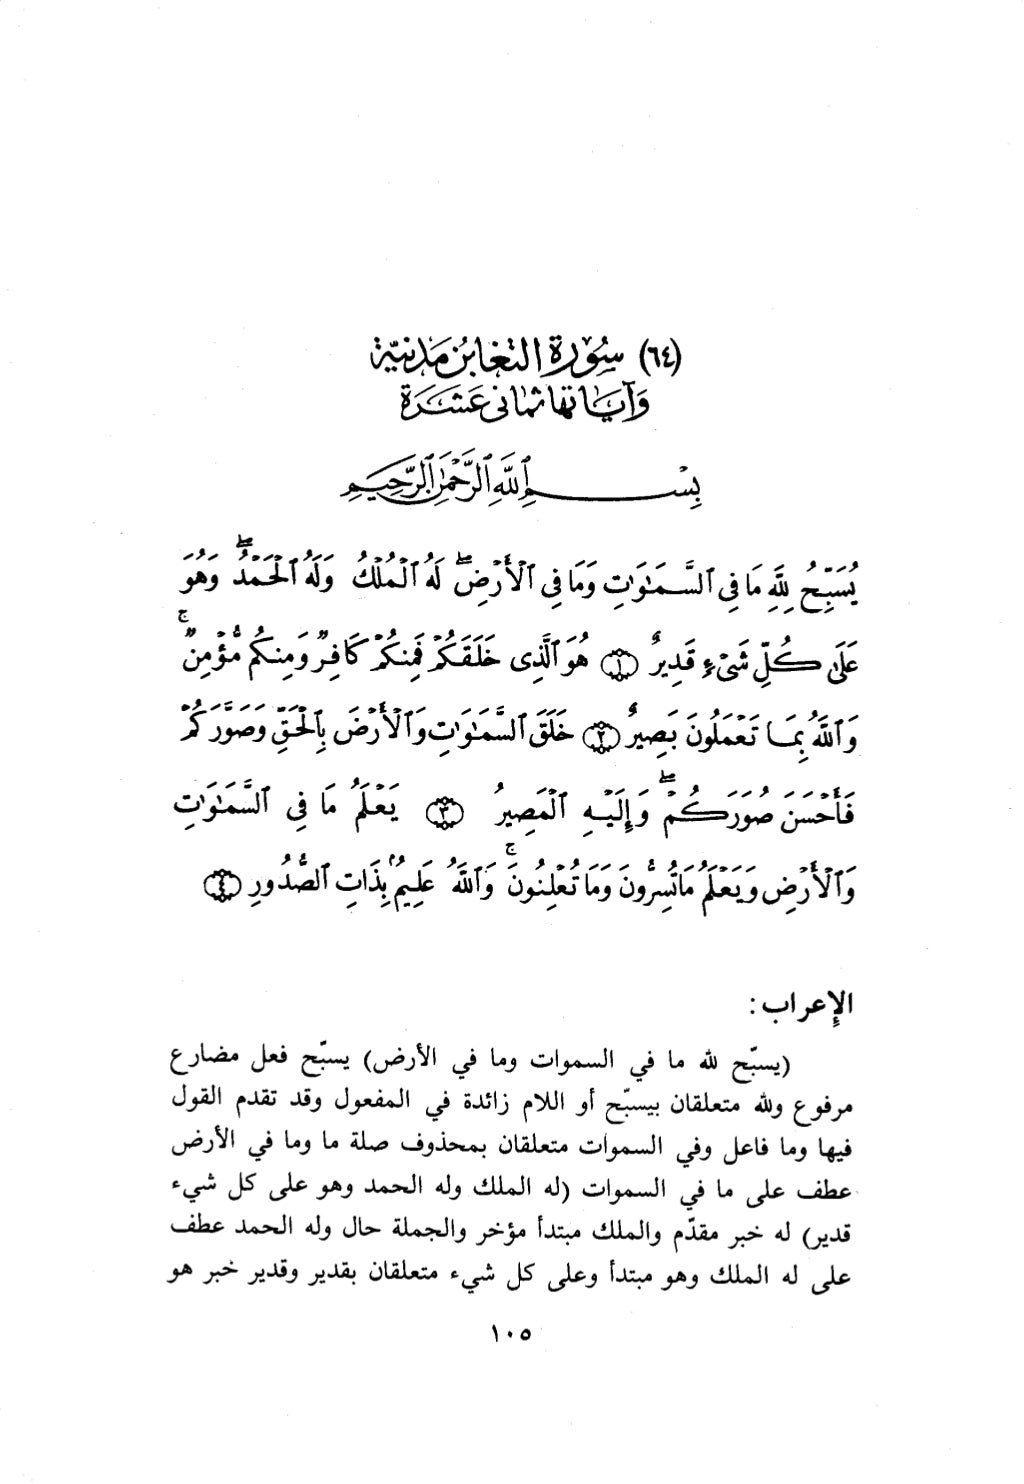 (٦٤) سُورَة التغَابُن مَدَنيَّة
وَآيَاتها ثمَاني عَشَرَة
بِسْمِ ٱللَّهِ ٱلرَّحْمَٰنِ ٱلرَّحِيمِ
يُسَبِّحُ لِلَّهِ مَا فِي ٱلسَّمَٰوَٰتِ وَمَا فِي ٱلْأَرْضِ ۖ لَهُ ٱلْمُلْكُ وَلَهُ ٱلْحَمْدُ ۖ وَهُوَ
عَلَىٰ كُلِّ شَىْءٍ قَدِيرٌ ١ هُوَ ٱلَّذِى خَلَقَكُمْ فَمِنكُمْ كَافِرٌ وَمِنكُم مُّؤْمِنٌ ۚ
وَٱللَّهُ بِمَا تَعْمَلُونَ بَصِيرٌ ٢ خَلَقَ ٱلسَّمَٰوَٰتِ وَٱلْأَرْضَ بِٱلْحَقِّ وَصَوَّرَكُمْ
فَأَحْسَنَ صُوَرَكُمْ ۖ وَإِلَيْهِ ٱلْمَصِيرُ ٣ يَعْلَمُ مَا فِي ٱلسَّمَٰوَٰتِ
وَٱلْأَرْضِ وَيَعْلَمُ مَا تُسِرُّونَ وَمَا تُعْلِنُونَ ۚ وَٱللَّهُ عَلِيمٌۢ بِذَاتِ ٱلصُّدُورِ ٤
الإِعراب :
(يسبّح لله ما في السموات وما في الأرض) يسبّح فعل مضارع
مرفوع ولله متعلقان بيسبّح أو اللام زائدة في المفعول وقد تقدم القول
فيها وما فاعل وفي السموات متعلقان بمحذوف صلة ما وما في الأرض
عطف على ما في السموات (له الملك وله الحمد وهو على كل شيء
قدير) له خبر مقدّم والملك مبتدأ مؤخر والجملة حال وله الحمد عطف
على له الملك وهو مبتدأ وعلى كل شيء متعلقان بقدير وقدير خبر هو
١٠٥